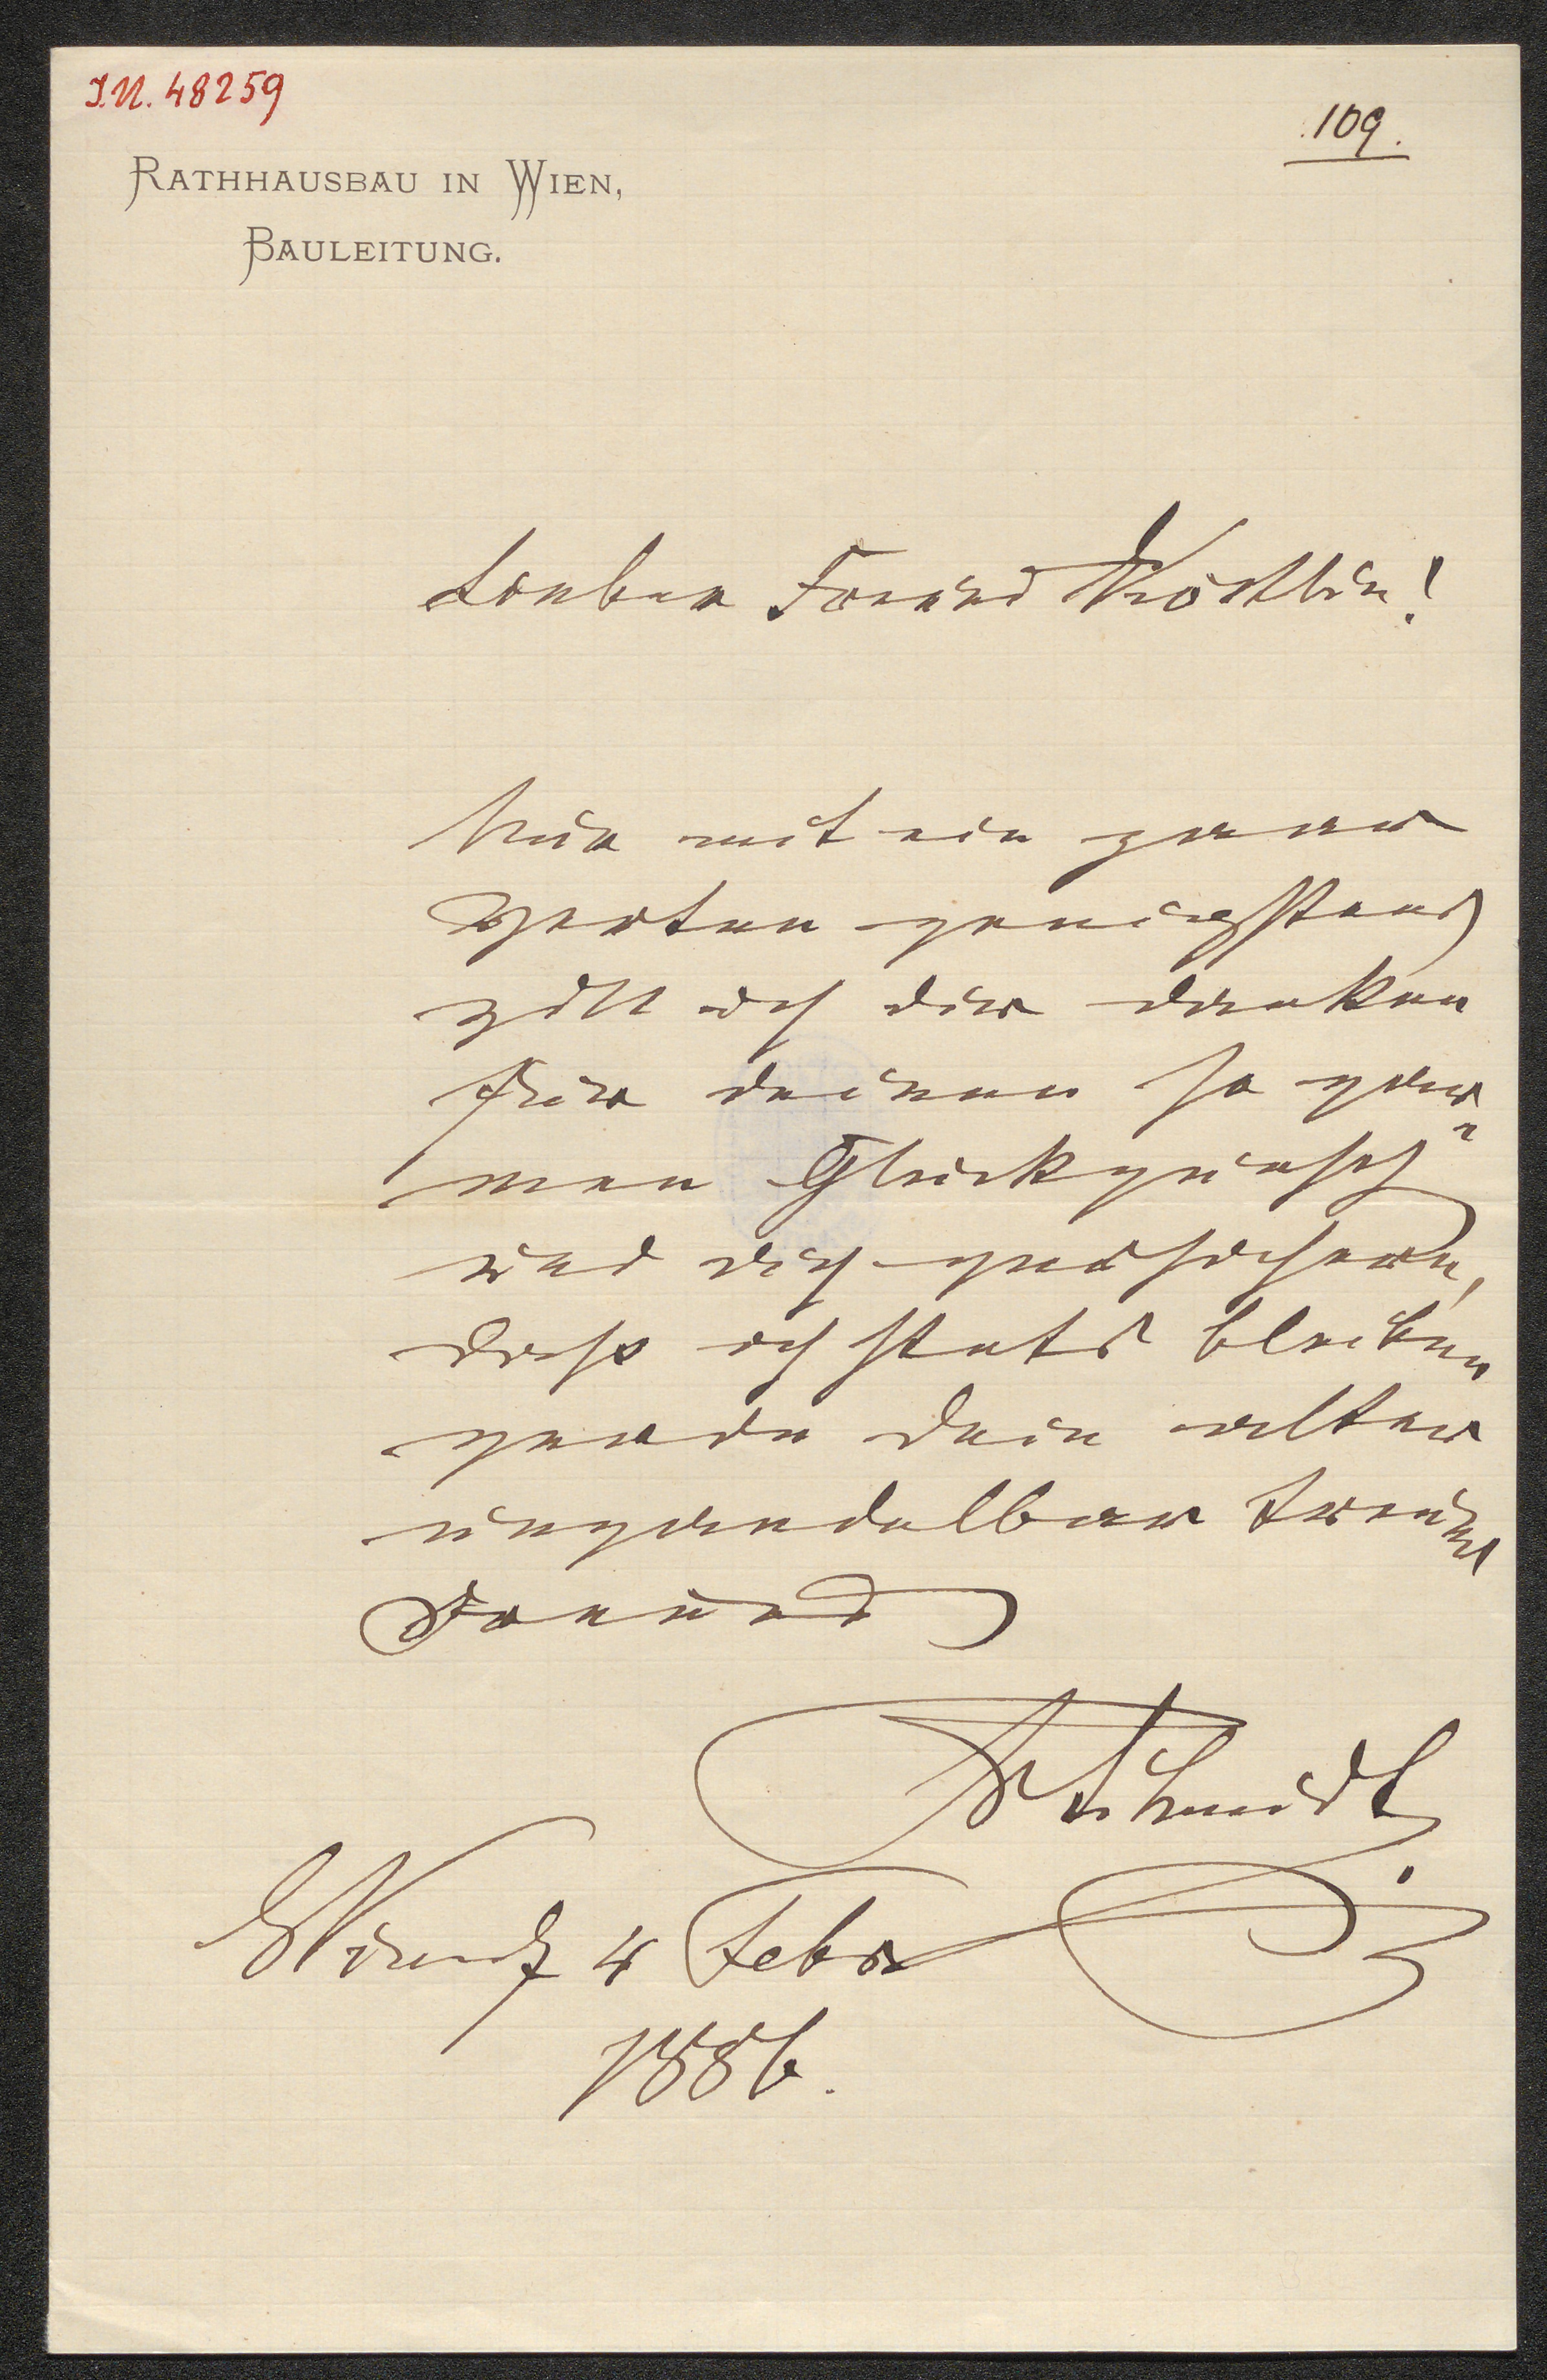 I.N. 48259
109.
RATHHAUSBAU IN WIEN,
BAULEITUNG.
Lieber Freund Köstlin!
Nur mit ein paar
Worten wenigstens
will ich dir danken
für deinen so war-
men Glückwunsch
und dich versichern,
dass ich stets bleiben
werde dein alter
unwandelbar treuer
Freund
FSchmidt
Wien d 4 Febr
1886.